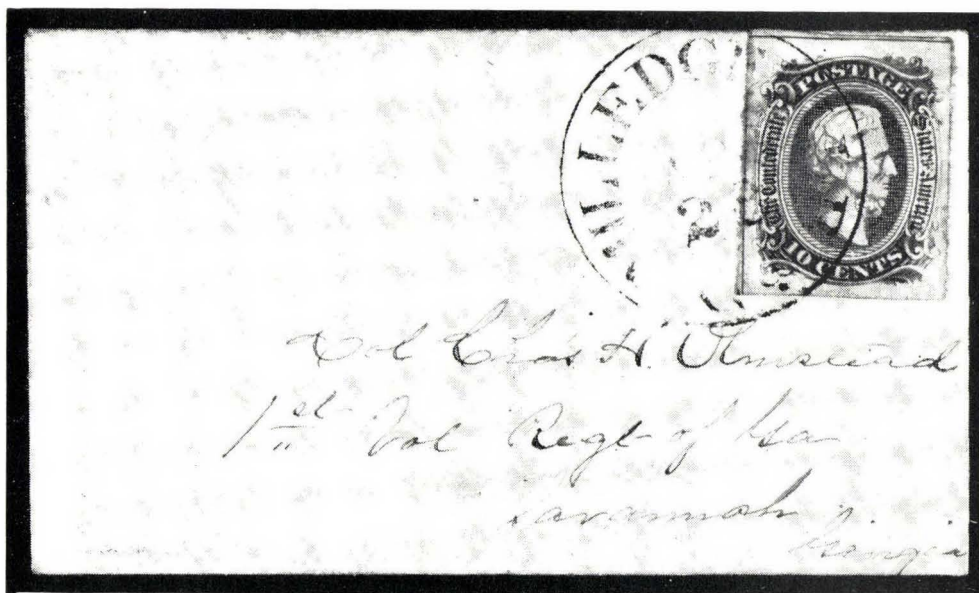 MILLEDGE
2
POSTAGE
The Confederate States America
10 CENTS
Col Chas H. Olmstead
1st Vol Regt of Ga
Savannah
Georgia